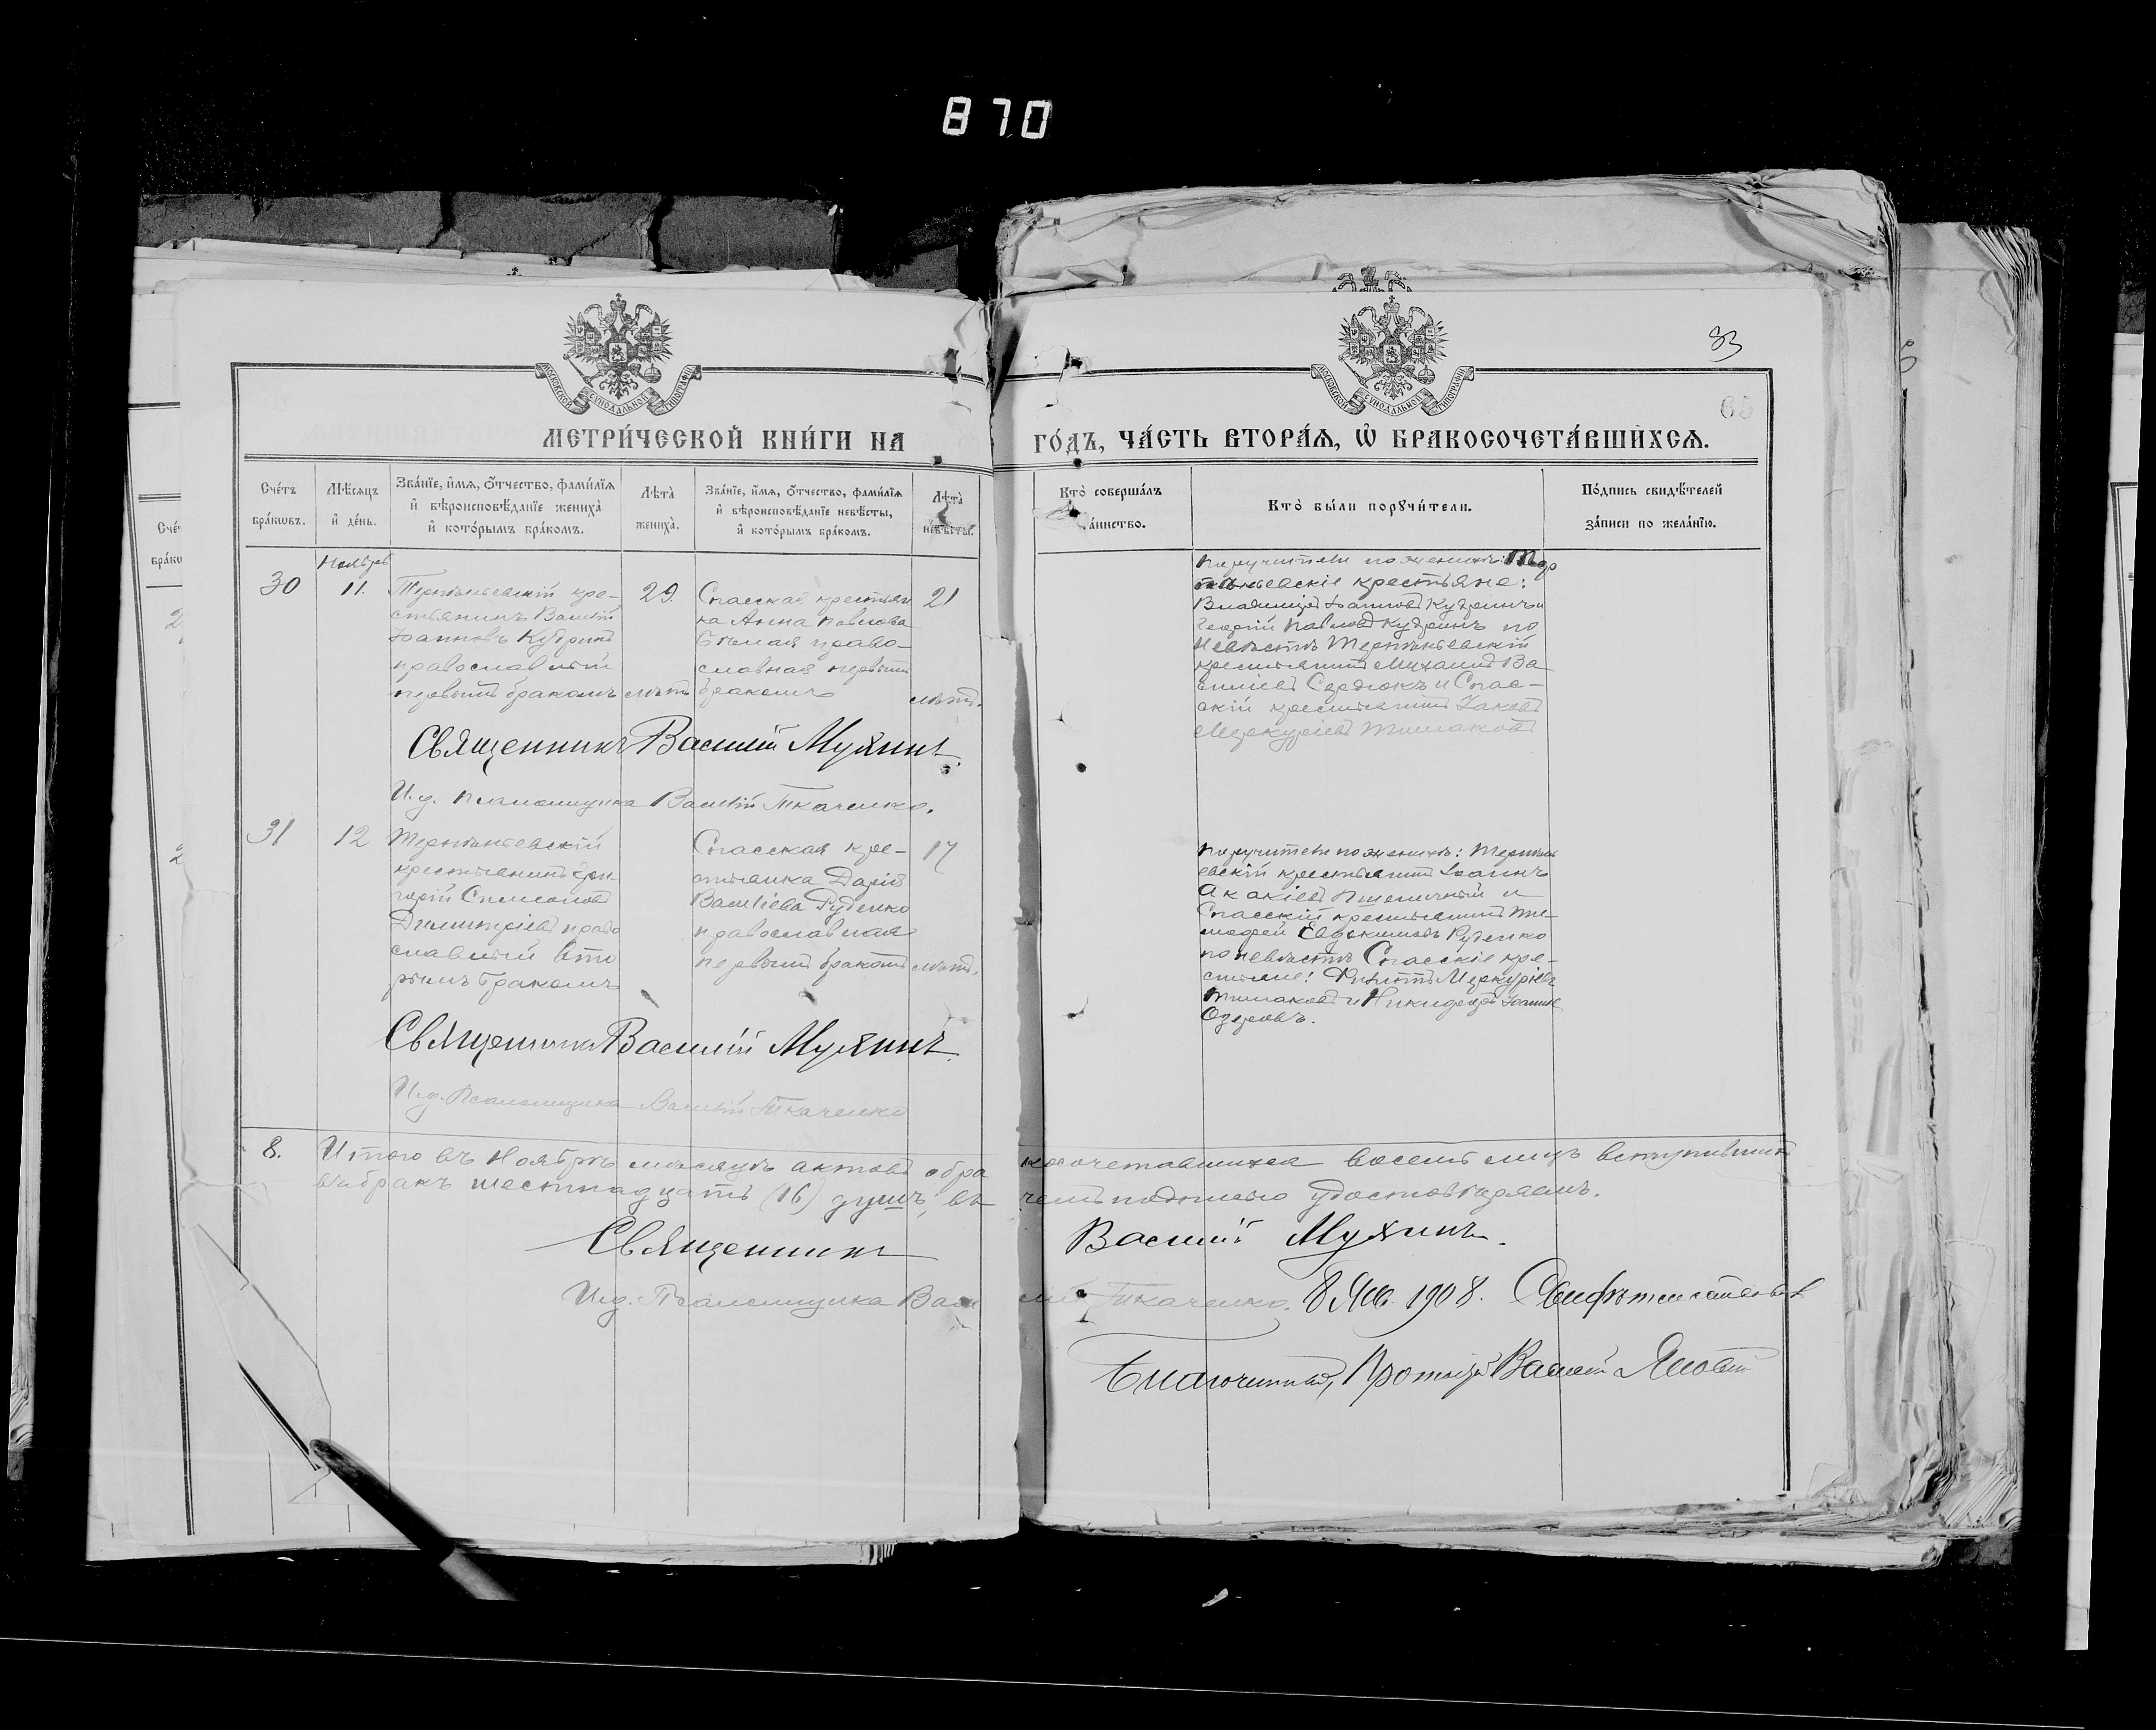 870
МОСКОВСКОЙ СѴНОДАЛЬНОЙ ТИПОГРАФІИ
МОСКОВСКОЙ СѴНОДАЛЬНОЙ ТИПОГРАФІИ
33
65
МЕТРИ́ЧЕСКОЙ КНИ́ГИ НА ГО́ДЪ, ЧА́СТЬ ВТОРА́Ѧ, Ѡ҆ БРАКОСОЧЕТА́ВШИХСѦ.
Сче́тъ бра́кѡвъ.
Мѣ́сѧцъ и҆ де́нь.
Зва́нїе, и҆́мѧ, ѻ҆́тчество, фами́лїѧ и҆ вѣроисповѣ́данїе жениха̀ и҆ кото́рымъ бра́комъ.
Лѣ́та̀ жениха̀.
Зва́нїе, и҆́мѧ, ѻ҆́тчество, фами́лїѧ и҆ вѣроисповѣ́данїе невѣ́сты, и҆ кото́рымъ бра́комъ.
Лѣ́та̀ невѣ́сты.
Кто̀ соверша́лъ та́инство.
Кто̀ бы́ли порꙋчи́тели.
По́дпись свидѣ́телей за́писи по жела́нїю.
Ноябрь
30
11.
Терпѣньевскій кре-
стьянинъ Василій
Іоанновъ Кудринъ
православный
первымъ бракомъ
29
лѣтъ
Спасская крестьян
ка Анна Павлова
Бѣлая право-
славная первымъ
бракомъ
21
лѣтъ.
Поручители по женихѣ: Тер
пѣньевскіе крестьяне:
Владиміръ Іоанновъ Кудринъ и
Георгій Павловъ Кудринъ по
невѣстѣ Терпѣньевскій
крестьянинъ Михаилъ Ва
силіевъ Сердюкъ и Спас-
скій крестьянинъ Іаковъ
Меркуріевъ Тимаковъ
Священникъ Василій Мухинъ.
И.д. псаломщика Василій Ткаченко.
31
12
Терпѣньевскій
крестьянинъ Гри
горій Симеоновъ
Димитріевъ право
славный вто
рымъ бракомъ
Спасская кре-
стьянка Дарія
Василіева Руденко
православная
первымъ бракомъ
17
лѣтъ.
Поручители по женихѣ: Терпѣнь
евскій крестьянинъ Іоаннъ
Акакіевъ Пшеничный и
Спасскій крестьянинъ Ти-
мофей Евдокимовъ Руденко
по невѣстѣ Спасскіе кре-
стьяне: Филиппъ Меркуріевъ
Тимаковъ и Никифоръ Іоаннов
Озеровъ.
Священникъ Василій Мухинъ.
И.д. Псаломщика Василій Ткаченко
8.
Итого въ Ноябрѣ мѣсяцѣ актовъ о бра косочетавшихся восемь лицъ вступившихъ
въ бракъ шестнадцать (16) душъ, въ чемъ подписью удостовѣряемъ.
Священникъ Василій Мухинъ.
И.д. Псаломщика Васи лій Ткаченко.
8 Янв. 1908. Свидѣтельствовалъ
Благочинный, Протоіерей Василій